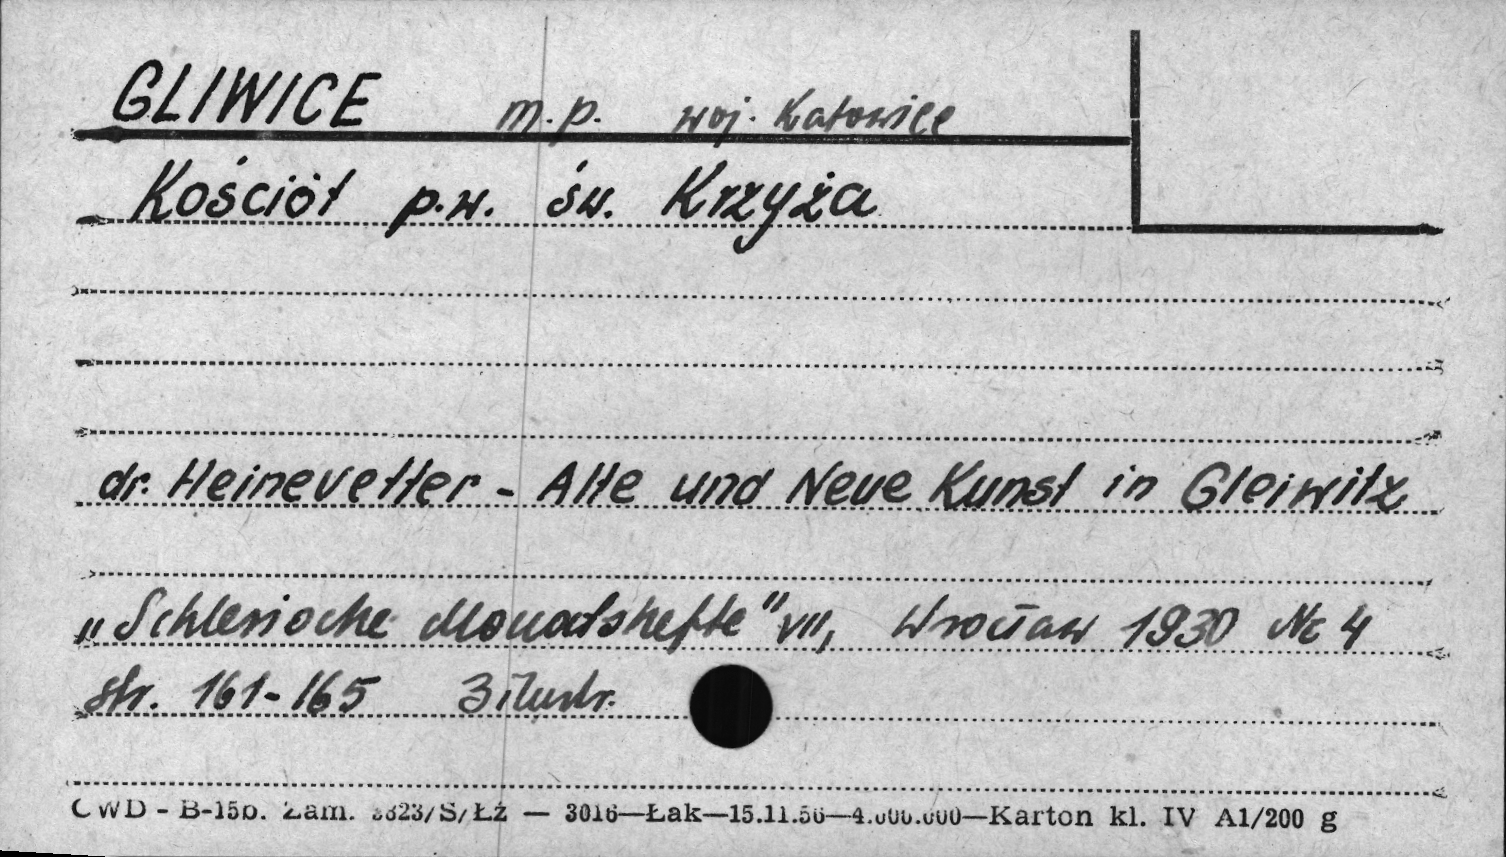 GLIWICE m.p. woj. Katowice
Kościół p.w. św. Krzyża
dr. Heinevetter - Alte und Neue Kunst in Gleiwitz
„Schlesische Monatshefte" VII, Wrocław 1930 Nr 4
str. 161-165 3 ilustr.
CWD - B-15b. Zam. 2823/S/Łż — 3016—Łak—15.11.56—4.000.000—Karton kl. IV A1/200 g